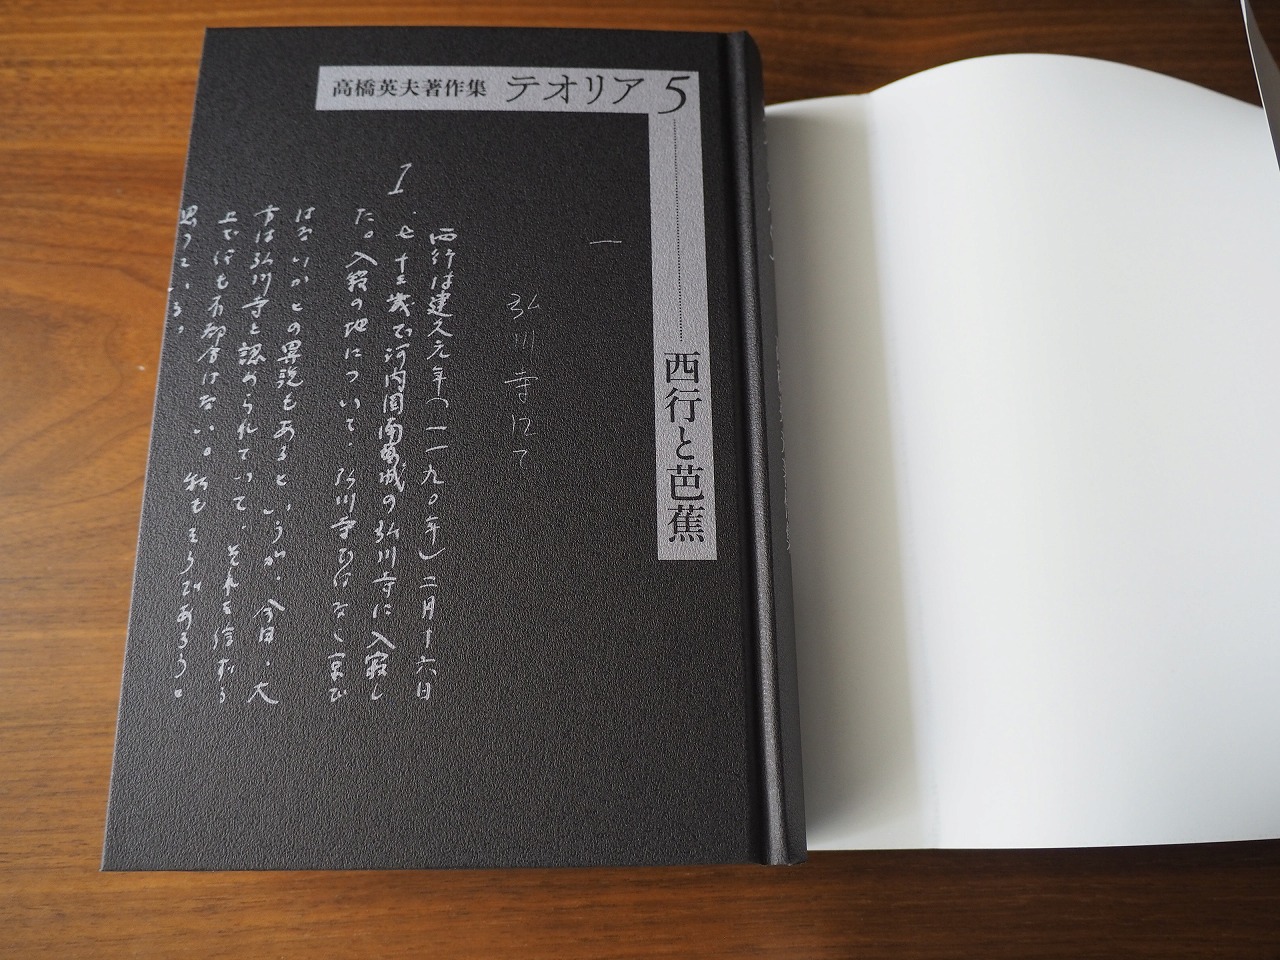 高橋英夫著作集 テオリア 5
西行と芭蕉
一
弘川寺にて
I
西行は建久元年(一一九〇年)二月十六日
、七十三歳で河内国南葛城の弘川寺に入寂し
た。入寂の地について、弘川寺ではなく京で
はないかとの異説もあるというが、今日、大
方は弘川寺と認められていて、それを信ずる
上で何も不都合はない。私もそうであろうと
思っている。